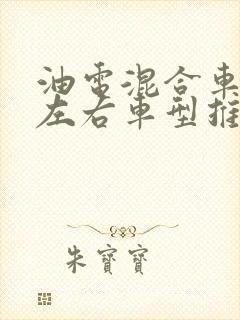 油電混合車
左右車型推
朱寶寶